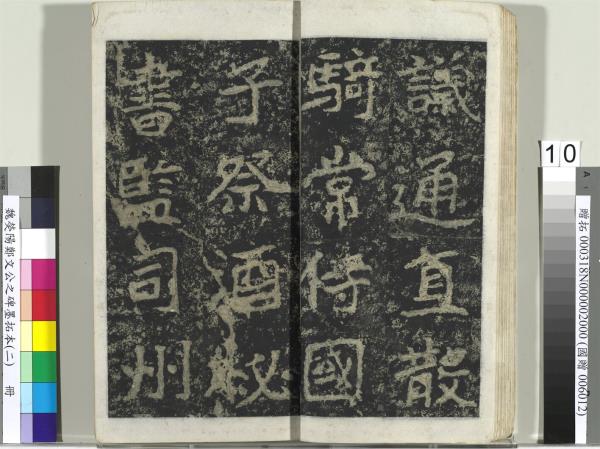 議通直散
騎常侍國
子祭酒秘
書監司州
10
魏滎陽鄭文公之碑墨拓本(二) 冊
贈拓 000318N000002000 (國贈 006012)